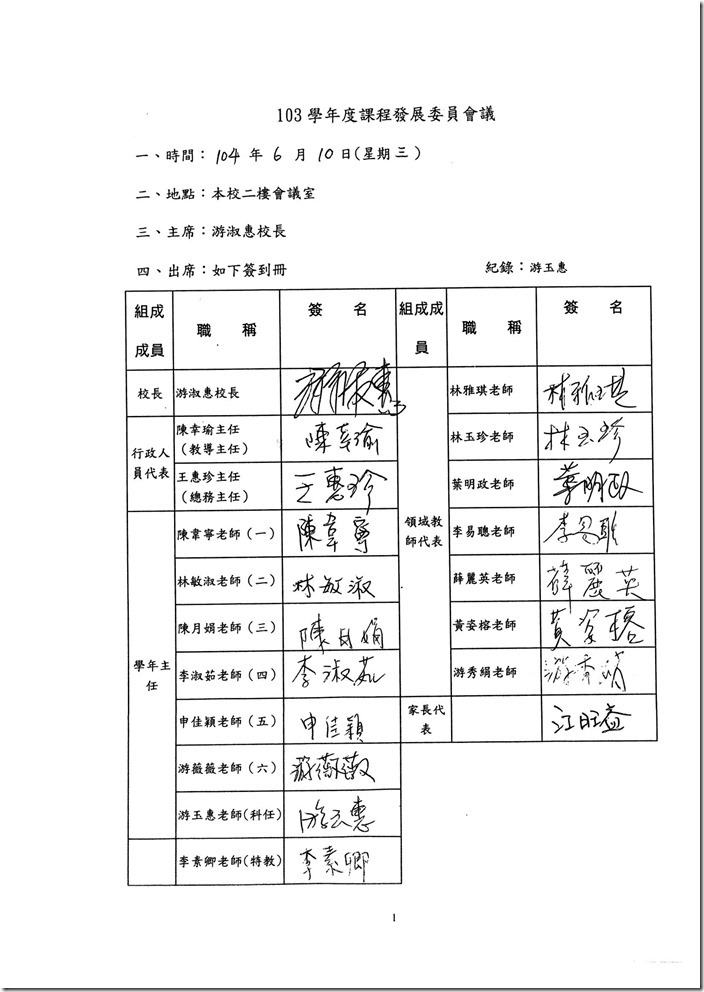 103 學年度課程發展委員會議
一、時間：104 年 6 月 10 日(星期三)
二、地點：本校二樓會議室
三、主席：游淑惠校長
四、出席：如下簽到冊 紀錄：游玉惠
組成成員 職稱 簽名 組成成員 職稱 簽名
校長 游淑惠校長
行政人員代表
陳幸瑜主任（教導主任） 陳幸瑜
王惠珍主任（總務主任） 王惠珍
學年主任
陳韋寧老師（一） 陳韋寧
林敏淑老師（二） 林敏淑
陳月娟老師（三） 陳月娟
李淑茹老師（四） 李淑茹
申佳穎老師（五） 申佳穎
游薇薇老師（六） 游薇薇
游玉惠老師(科任) 游玉惠
李素卿老師(特教) 李素卿
領域教師代表
林雅琪老師 林雅琪
林玉珍老師 林玉珍
葉明政老師 葉明政
李易聰老師 李易聰
薛麗英老師 薛麗英
黃姿榕老師 黃姿榕
游秀絹老師
家長代表 江旺益
1